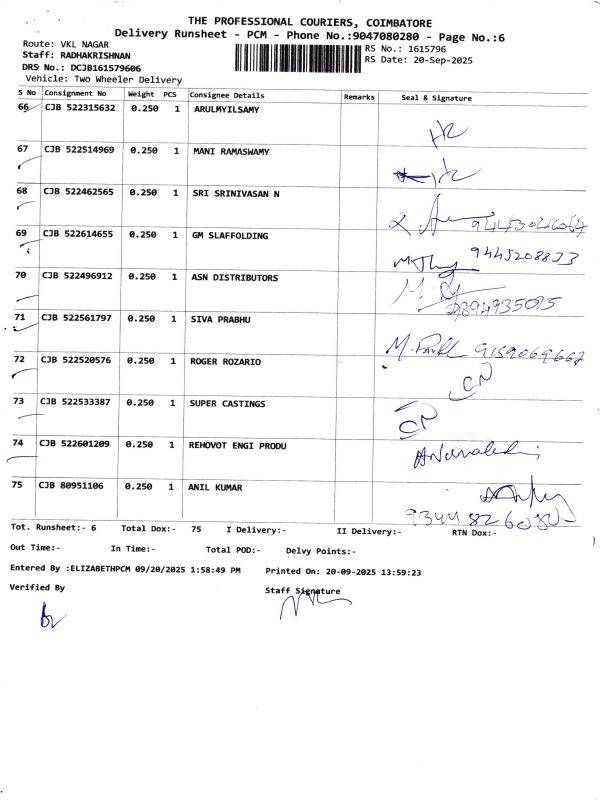 THE PROFESSIONAL COURIERS, COIMBATORE
Delivery Runsheet - PCM - Phone No.:9047080280 - Page No.:6
Route: VKL NAGAR
Staff: RADHAKRISHNAN
DRS No.: DCJB161579606
Vehicle: Two Wheeler Delivery
RS No.: 1615796
RS Date: 20-Sep-2025
S No Consignment No Weight PCS Consignee Details Remarks Seal & Signature
66 CJB 522315632 0.250 1 ARULMYILSAMY
67 CJB 522514969 0.250 1 MANI RAMASWAMY
68 CJB 522462565 0.250 1 SRI SRINIVASAN N
69 CJB 522614655 0.250 1 GM SLAFFOLDING 9445208833
70 CJB 522496912 0.250 1 ASN DISTRIBUTORS
71 CJB 522561797 0.250 1 SIVA PRABHU
72 CJB 522520576 0.250 1 ROGER ROZARIO
73 CJB 522533387 1 SUPER CASTINGS
74 CJB 522601209 0.250 1 REHOVOT ENGI PRODU
75 CJB 80951106 0.250 1 ANIL KUMAR
Tot. Runsheet:- 6 Total Dox:- 75 I Delivery:- II Delivery:- RTN Dox:-
Out Time:- In Time:- Total POD:- Delvy Points:-
Entered By :ELIZABETHPCM 09/20/2025 1:58:49 PM Printed On: 20-09-2025 13:59:23
Verified By Staff Signature